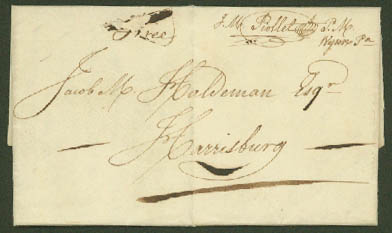 Free
J. M. Piollet P. M
Wysox Pa
Jacob M. Haldeman Esqr
Harrisburg